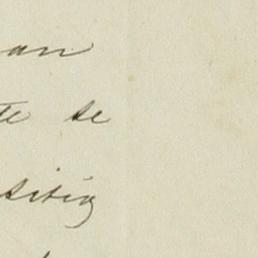 an
te se
sitig